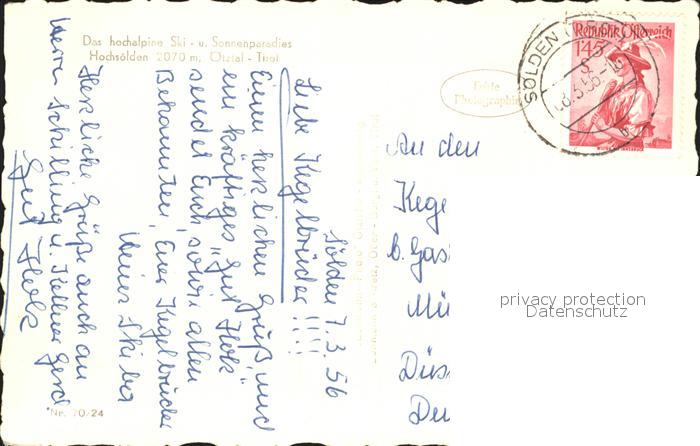 Das hochalpine Ski- u. Sonnenparadies
Hochsölden 2070 m, Ötztal - Tirol
Echte
Photographie
SÖLDEN
8.3.56
Republik Österreich
1.45
S
Sölden 7.3.56
Liebe Kegelbrüder!!!!
Einen herzlichen Gruß und
ein kräftiges "Gut Holz"
sendet Euch, sowie allen
Bekannten, Euer Kegelbruder
Heinz
Herzliche Grüße auch an
Herrn Schilling u. Kellner Gerd
Gut Holz
An den
Kege
b. Gas
Mü
Düs
Deu
privacy protection
Datenschutz
Nr. 70/24